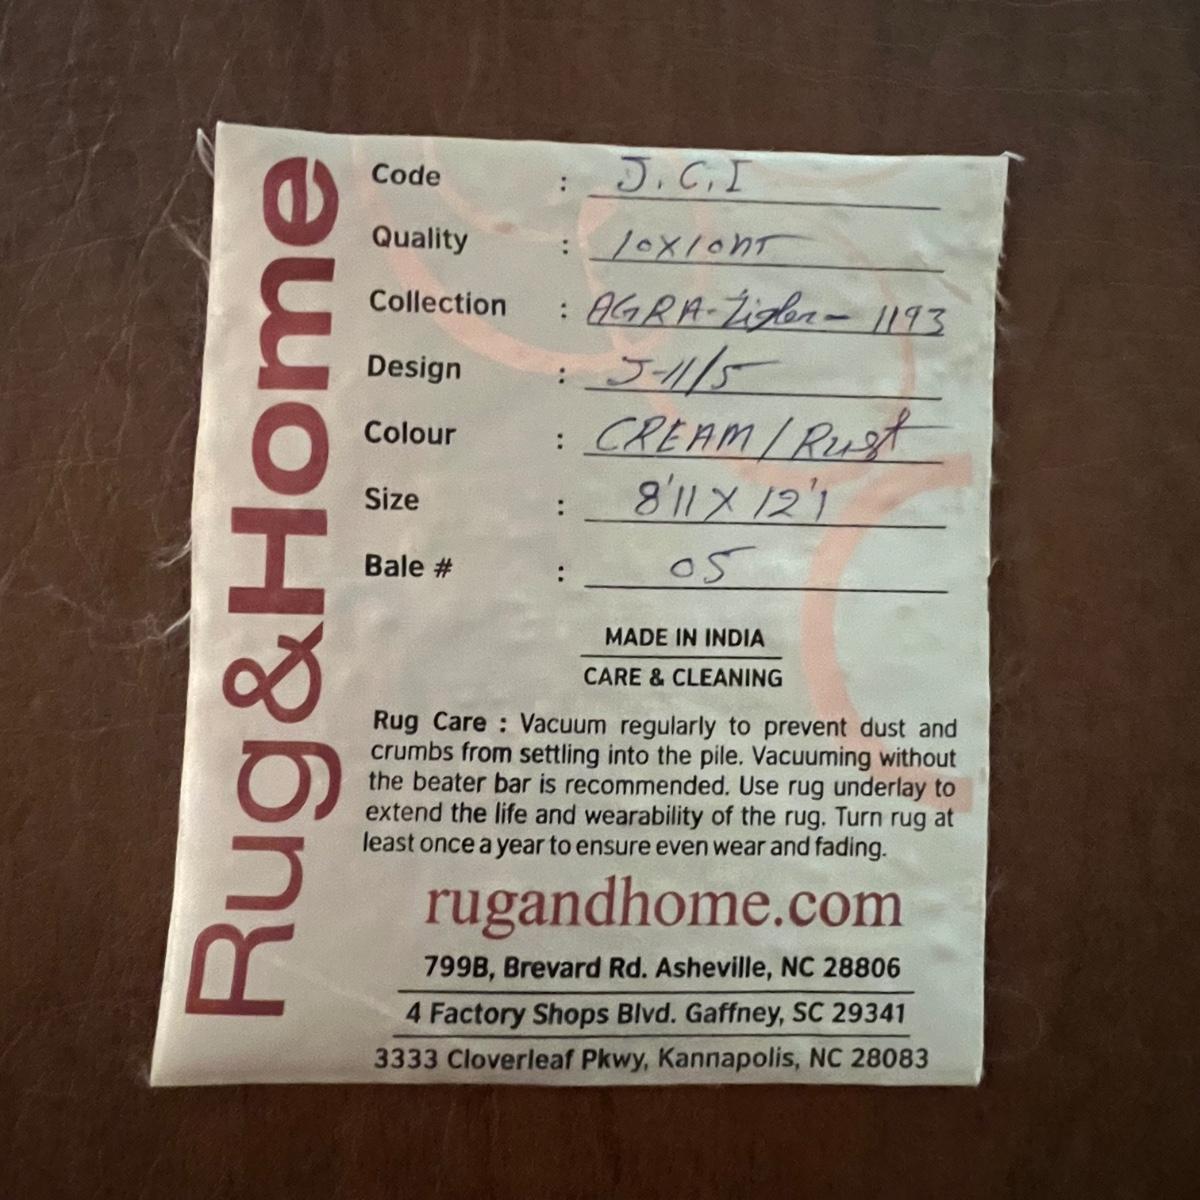 Rug&Home
Code : J.C.I
Quality : 10X10 NT
Collection : AGRA-Zigler - 1193
Design : J-11/5
Colour : CREAM/Rust
Size : 8'11 X 12'1
Bale # : 05
MADE IN INDIA
CARE & CLEANING
Rug Care : Vacuum regularly to prevent dust and
crumbs from settling into the pile. Vacuuming without
the beater bar is recommended. Use rug underlay to
extend the life and wearability of the rug. Turn rug at
least once a year to ensure even wear and fading.
rugandhome.com
799B, Brevard Rd. Asheville, NC 28806
4 Factory Shops Blvd. Gaffney, SC 29341
3333 Cloverleaf Pkwy, Kannapolis, NC 28083